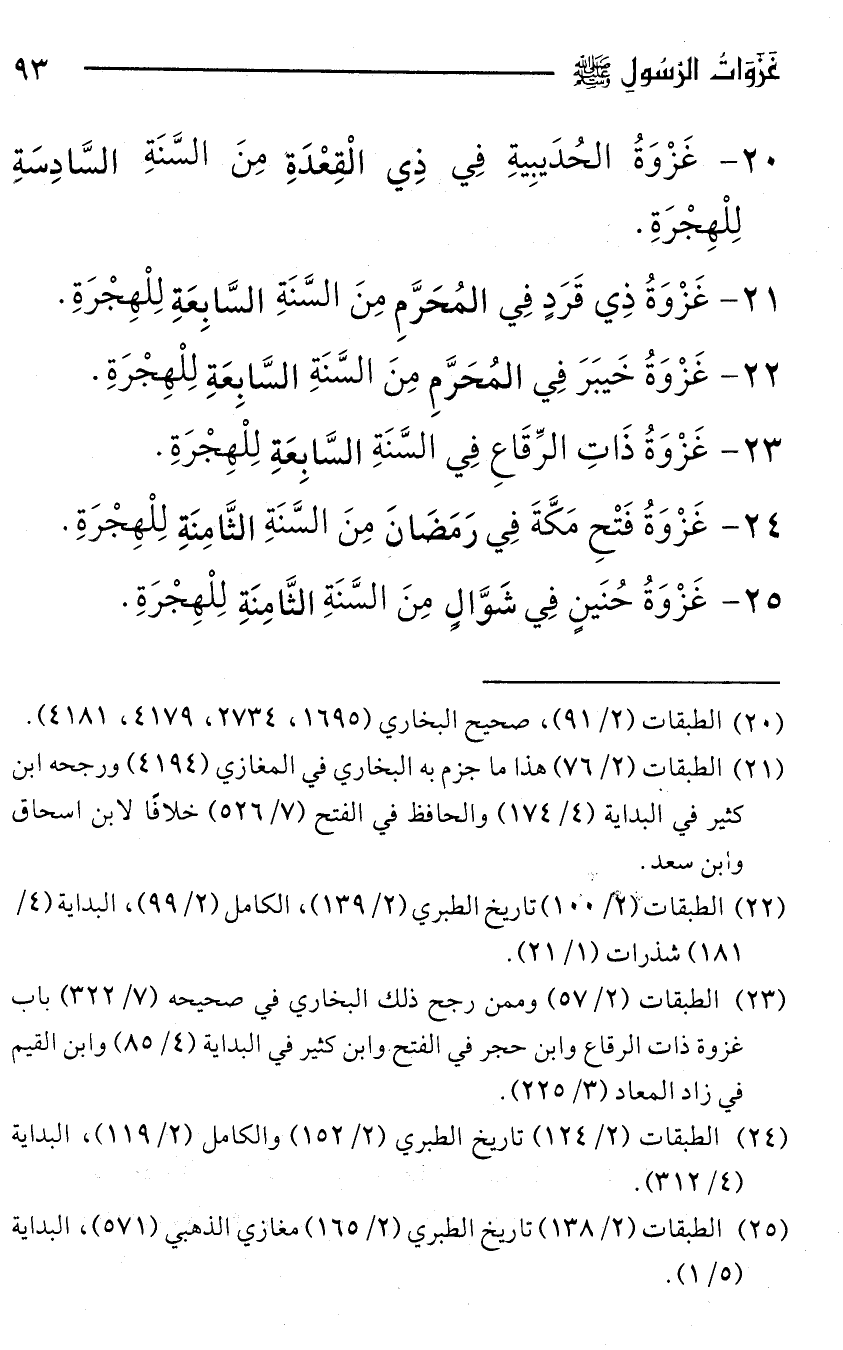 غَزَوَاتُ الرَسُولِ ﷺ ٩٣
٢٠- غَزْوَةُ الحُدَيبِيةِ فِي ذِي الْقِعْدَةِ مِنَ السَّنَةِ السَّادِسَةِ
لِلْهِجْرَةِ.
٢١- غَزْوَةُ ذِي قَرَدٍ فِي المُحَرَّمِ مِنَ السَّنَةِ السَّابِعَةِ لِلْهِجْرَةِ.
٢٢- غَزْوَةُ خَيبَرَ فِي المُحَرَّمِ مِنَ السَّنَةِ السَّابِعَةِ لِلْهِجْرَةِ.
٢٣- غَزْوَةُ ذَاتِ الرِّقَاعِ فِي السَّنَةِ السَّابِعَةِ لِلْهِجْرَةِ.
٢٤- غَزْوَةُ فَتْحِ مَكَّةَ فِي رَمَضَانَ مِنَ السَّنَةِ الثَّامِنَةِ لِلْهِجْرَةِ.
٢٥- غَزْوَةُ حُنَينٍ فِي شَوَّالٍ مِنَ السَّنَةِ الثَّامِنَةِ لِلْهِجْرَةِ.
(٢٠) الطبقات (٢/ ٩١)، صحيح البخاري (١٦٩٥، ٢٧٣٤، ٤١٧٩، ٤١٨١).
(٢١) الطبقات (٢/ ٧٦) هذا ما جزم به البخاري في المغازي (٤١٩٤) ورجحه ابن
كثير في البداية (٤/ ١٧٤) والحافظ في الفتح (٧/ ٥٢٦) خلافًا لابن اسحاق
وابن سعد.
(٢٢) الطبقات (٢/ ١٠٠) تاريخ الطبري (٢/ ١٣٩)، الكامل (٢/ ٩٩)، البداية (٤/
١٨١) شذرات (١/ ٢١).
(٢٣) الطبقات (٢/ ٥٧) وممن رجح ذلك البخاري في صحيحه (٧/ ٣٢٢) باب
غزوة ذات الرقاع وابن حجر في الفتح وابن كثير في البداية (٤/ ٨٥) وابن القيم
في زاد المعاد (٣/ ٢٢٥).
(٢٤) الطبقات (٢/ ١٢٤) تاريخ الطبري (٢/ ١٥٢) والكامل (٢/ ١١٩)، البداية
(٤/ ٣١٢).
(٢٥) الطبقات (٢/ ١٣٨) تاريخ الطبري (٢/ ١٦٥) مغازي الذهبي (٥٧١)، البداية
(٥/ ١).